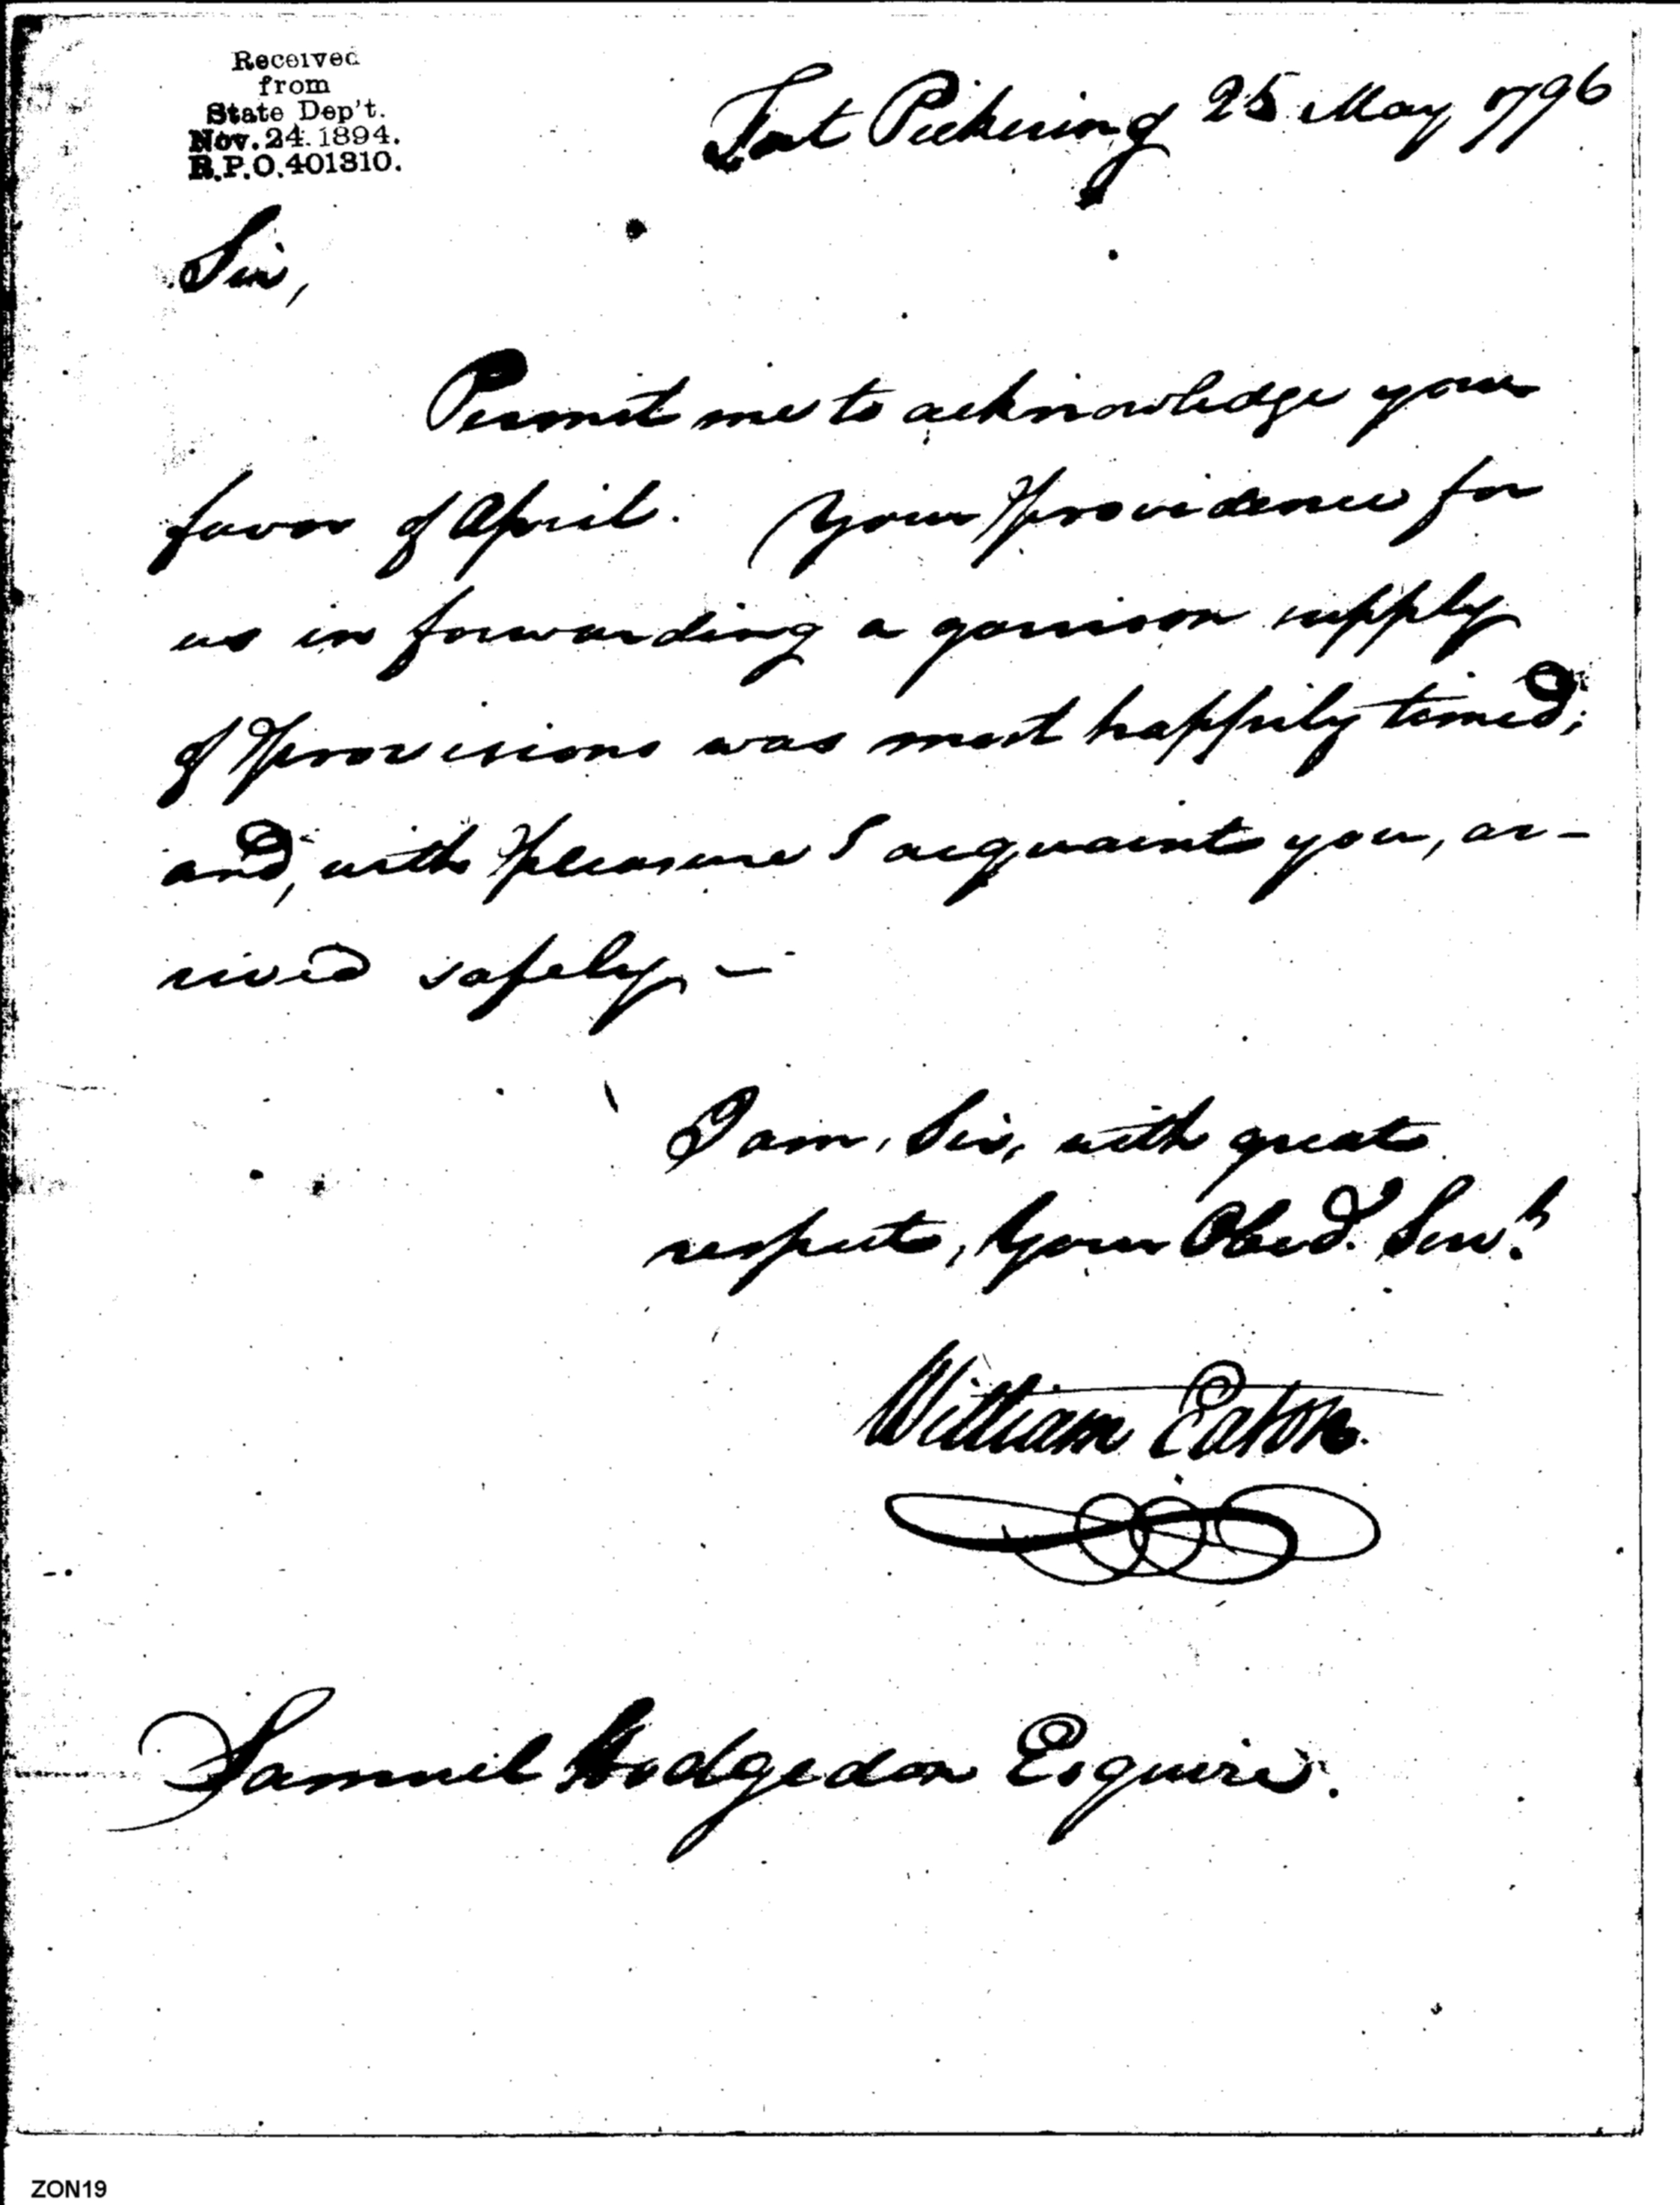 Received
from
State Dep't.
Nov. 24. 1894.
R.P.O. 401310.
Fort Pickering 25 May 1796
Sir,
Permit me to acknowledge your
favor of April. Your providence for
us in forwarding a garrison supply
of provisions was most happily timed;
and, with pleasure I acquaint you, ar-
rived safely, -
I am, Sir, with great
respect, Your Obed. Servt.
William Eaton.
Samuel Hodgedon Esquire.
ZON19